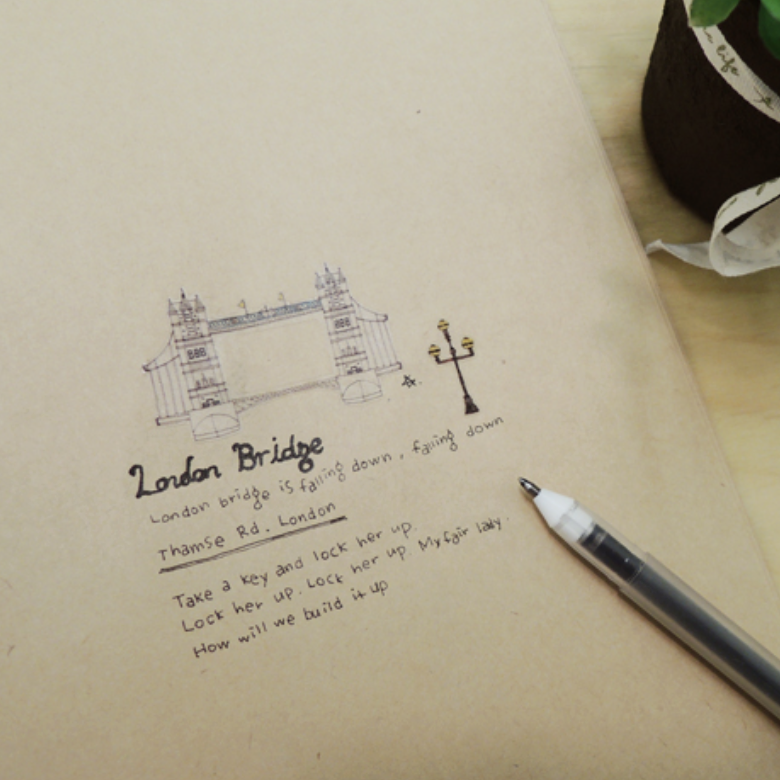 life
London Bridge
London bridge is falling down, falling down
Thamse Rd. London
Take a key and lock her up.
Lock her up. Lock her up. My fair lady.
How will we build it up